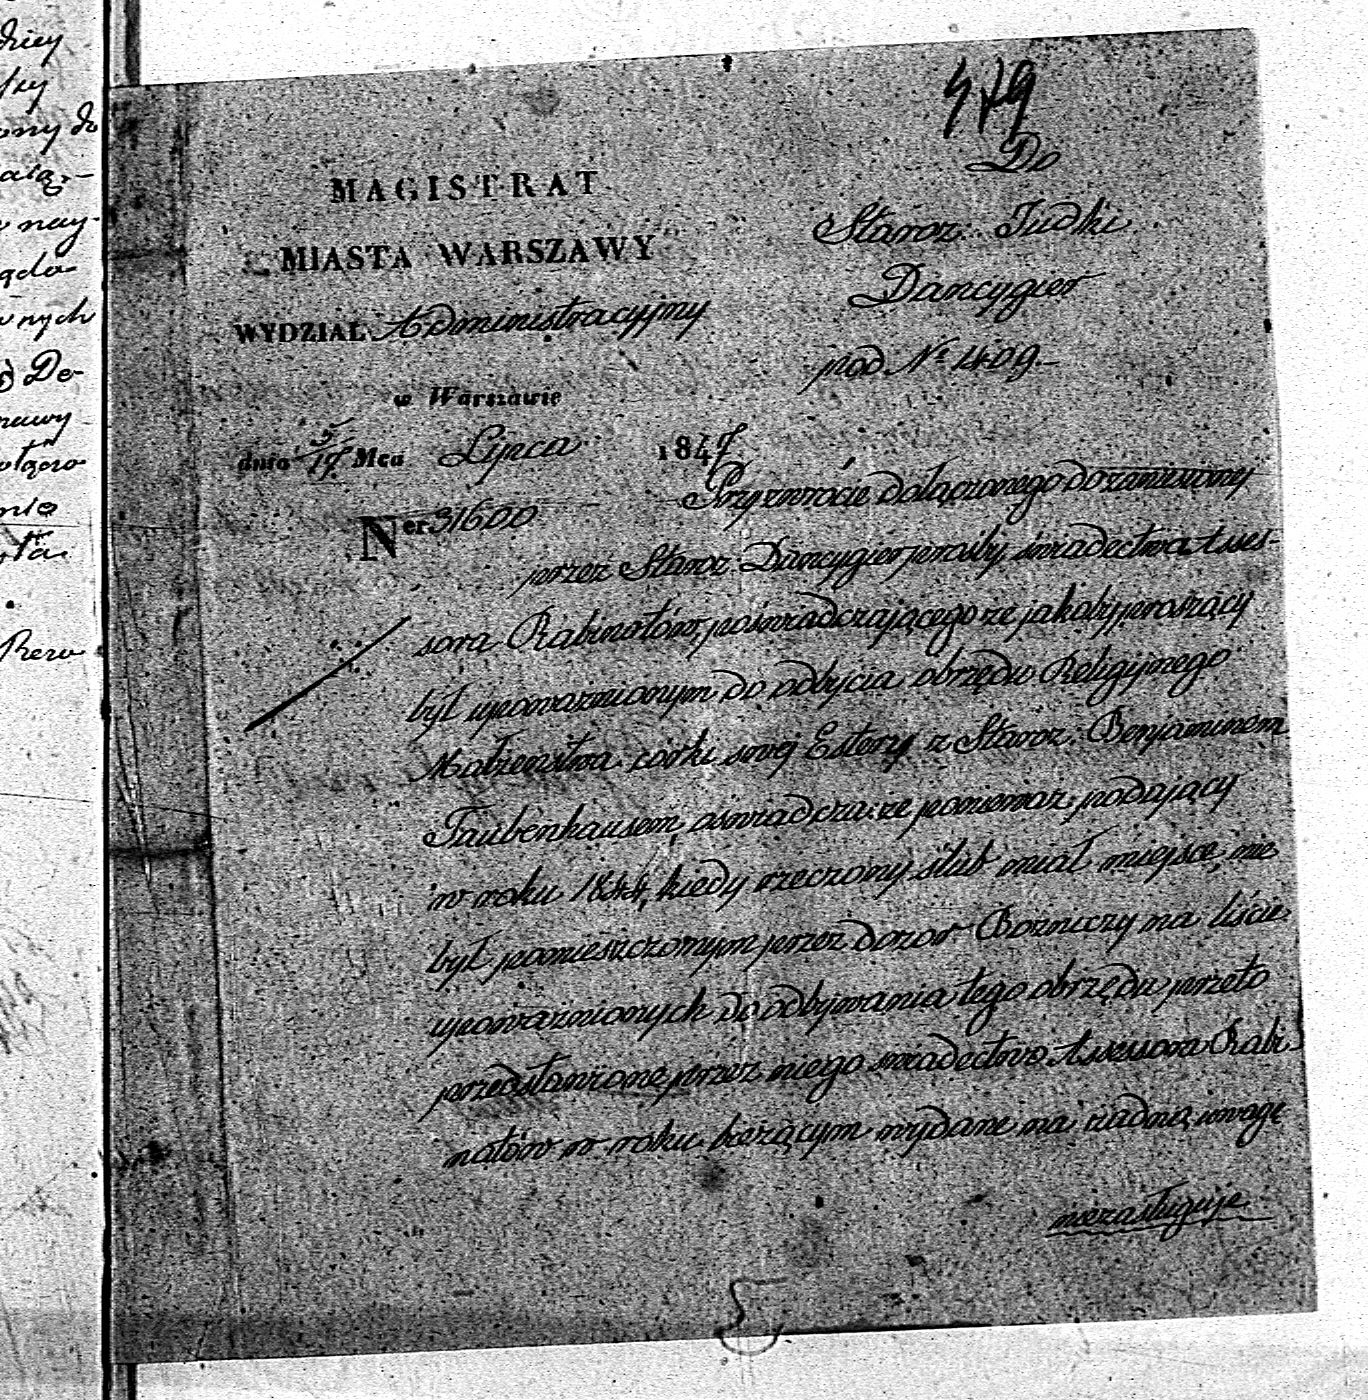 dziey
ony do
nay-
nych
De-
nia
Rezo
479
Do
Staroz. Judki
Dancygier
pod Nr 1409.
MAGISTRAT
MIASTA WARSZAWY
WYDZIAŁ Administracyjny
w Warszawie
dnia 5/17 Mca Lipca 1847
Ner. 31600
Przy zwrocie dołączonego do zaniesionej
przez Staroz Dancygier prośby, świadectwa Asses-
sora Rabinatów, poświadczającego że jakoby proszący
był upoważnionym do odbycia obrzędu Religijnego
Małżeństwa córki swej Estery z Staroz. Benjaminem
Taubenhausem, oświadcza: że ponieważ podający
w roku 1844, kiedy rzeczony ślub miał miejsce, nie
był pomieszczonym przez dozór Bożniczy na liście
upoważnionych do odbywania tego obrzędu przeto
przedstawione przez niego świadectwo Assessora Rabi-
natów w roku bieżącym wydane na żadną uwagę
niezasługuje